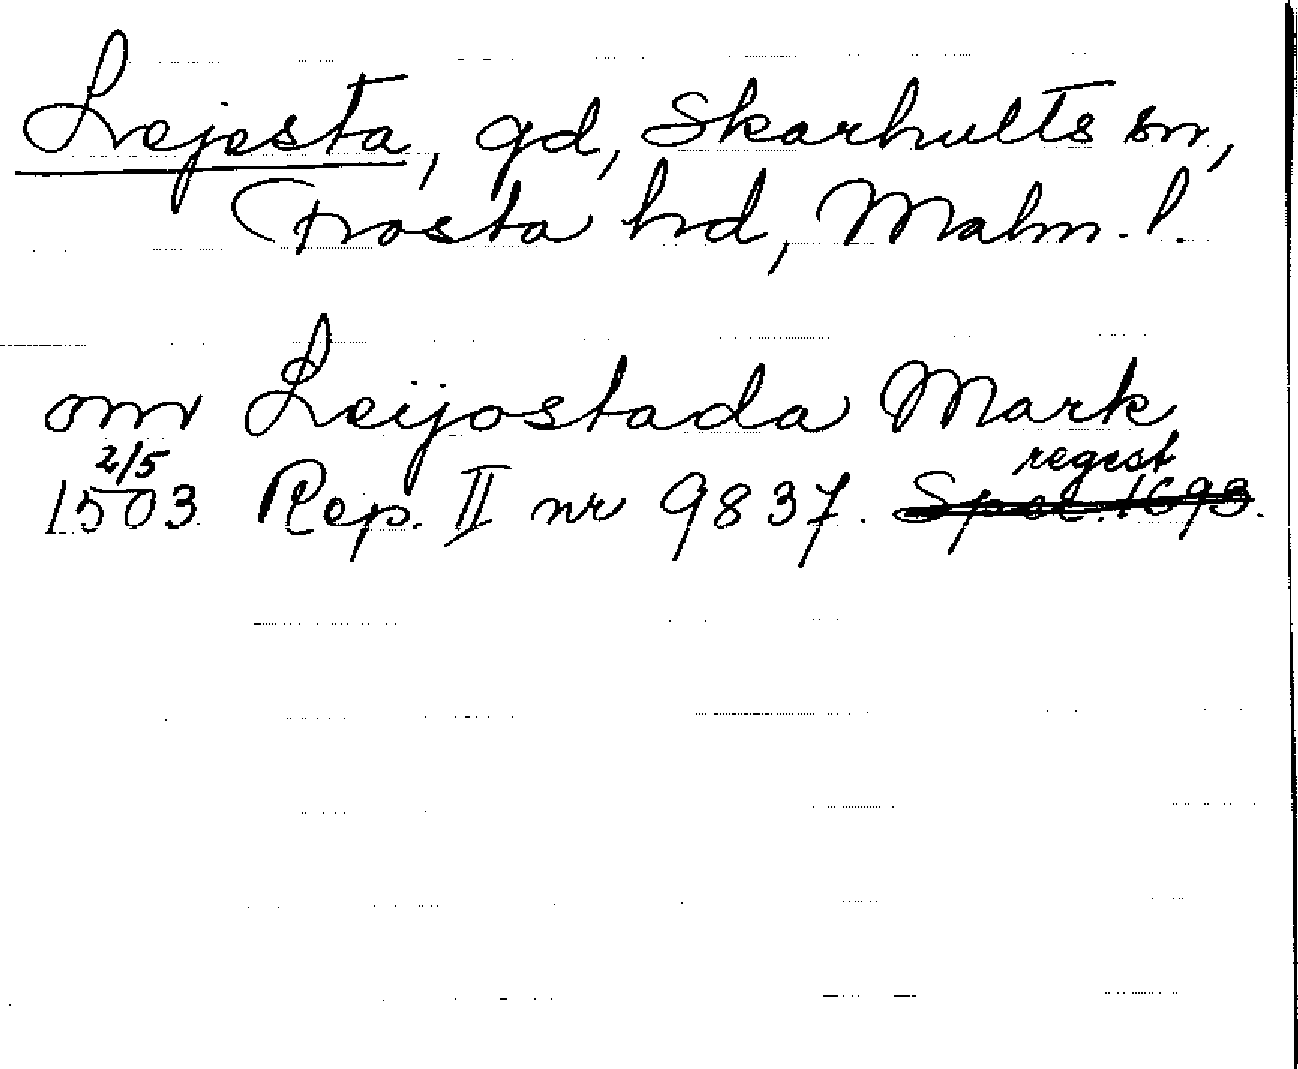 Lejesta, gd, Skarhults sn,
Frosta hd, Malm. l.
om Leijostada Mark
2/5 regest
1503 Rep. II nr 9837. Spec. 1693.